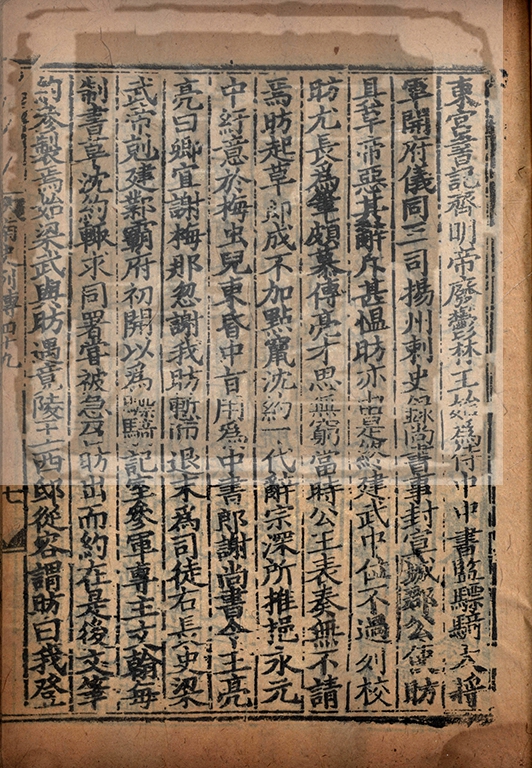 東宮書記齊明帝廢鬱林王始爲侍中中書監驃騎大將
軍開府儀同三司揚州刺史錄尚書事封宣城郡公使昉
具草帝惡其辭斥甚慍昉亦由是終建武中位不過列校
昉尤長爲筆頗慕傅亮才思無窮當時公王表奏無不請
焉昉起草即成不加點竄沈約一代辭宗深所推挹永元
中紆意於梅虫兒東昏中旨用爲中書郎謝尚書令王亮
亮曰卿宜謝梅那忽謝我昉慚而退末爲司徒右長史梁
武帝剋建鄴霸府初開以爲驃騎記室參軍專主文翰每
制書草沈約輒求同署甞被急召昉出而約在是後文筆
約參製焉始梁武與昉遇竟陵王西邸從容謂昉曰我登
南史列傳四十九
七